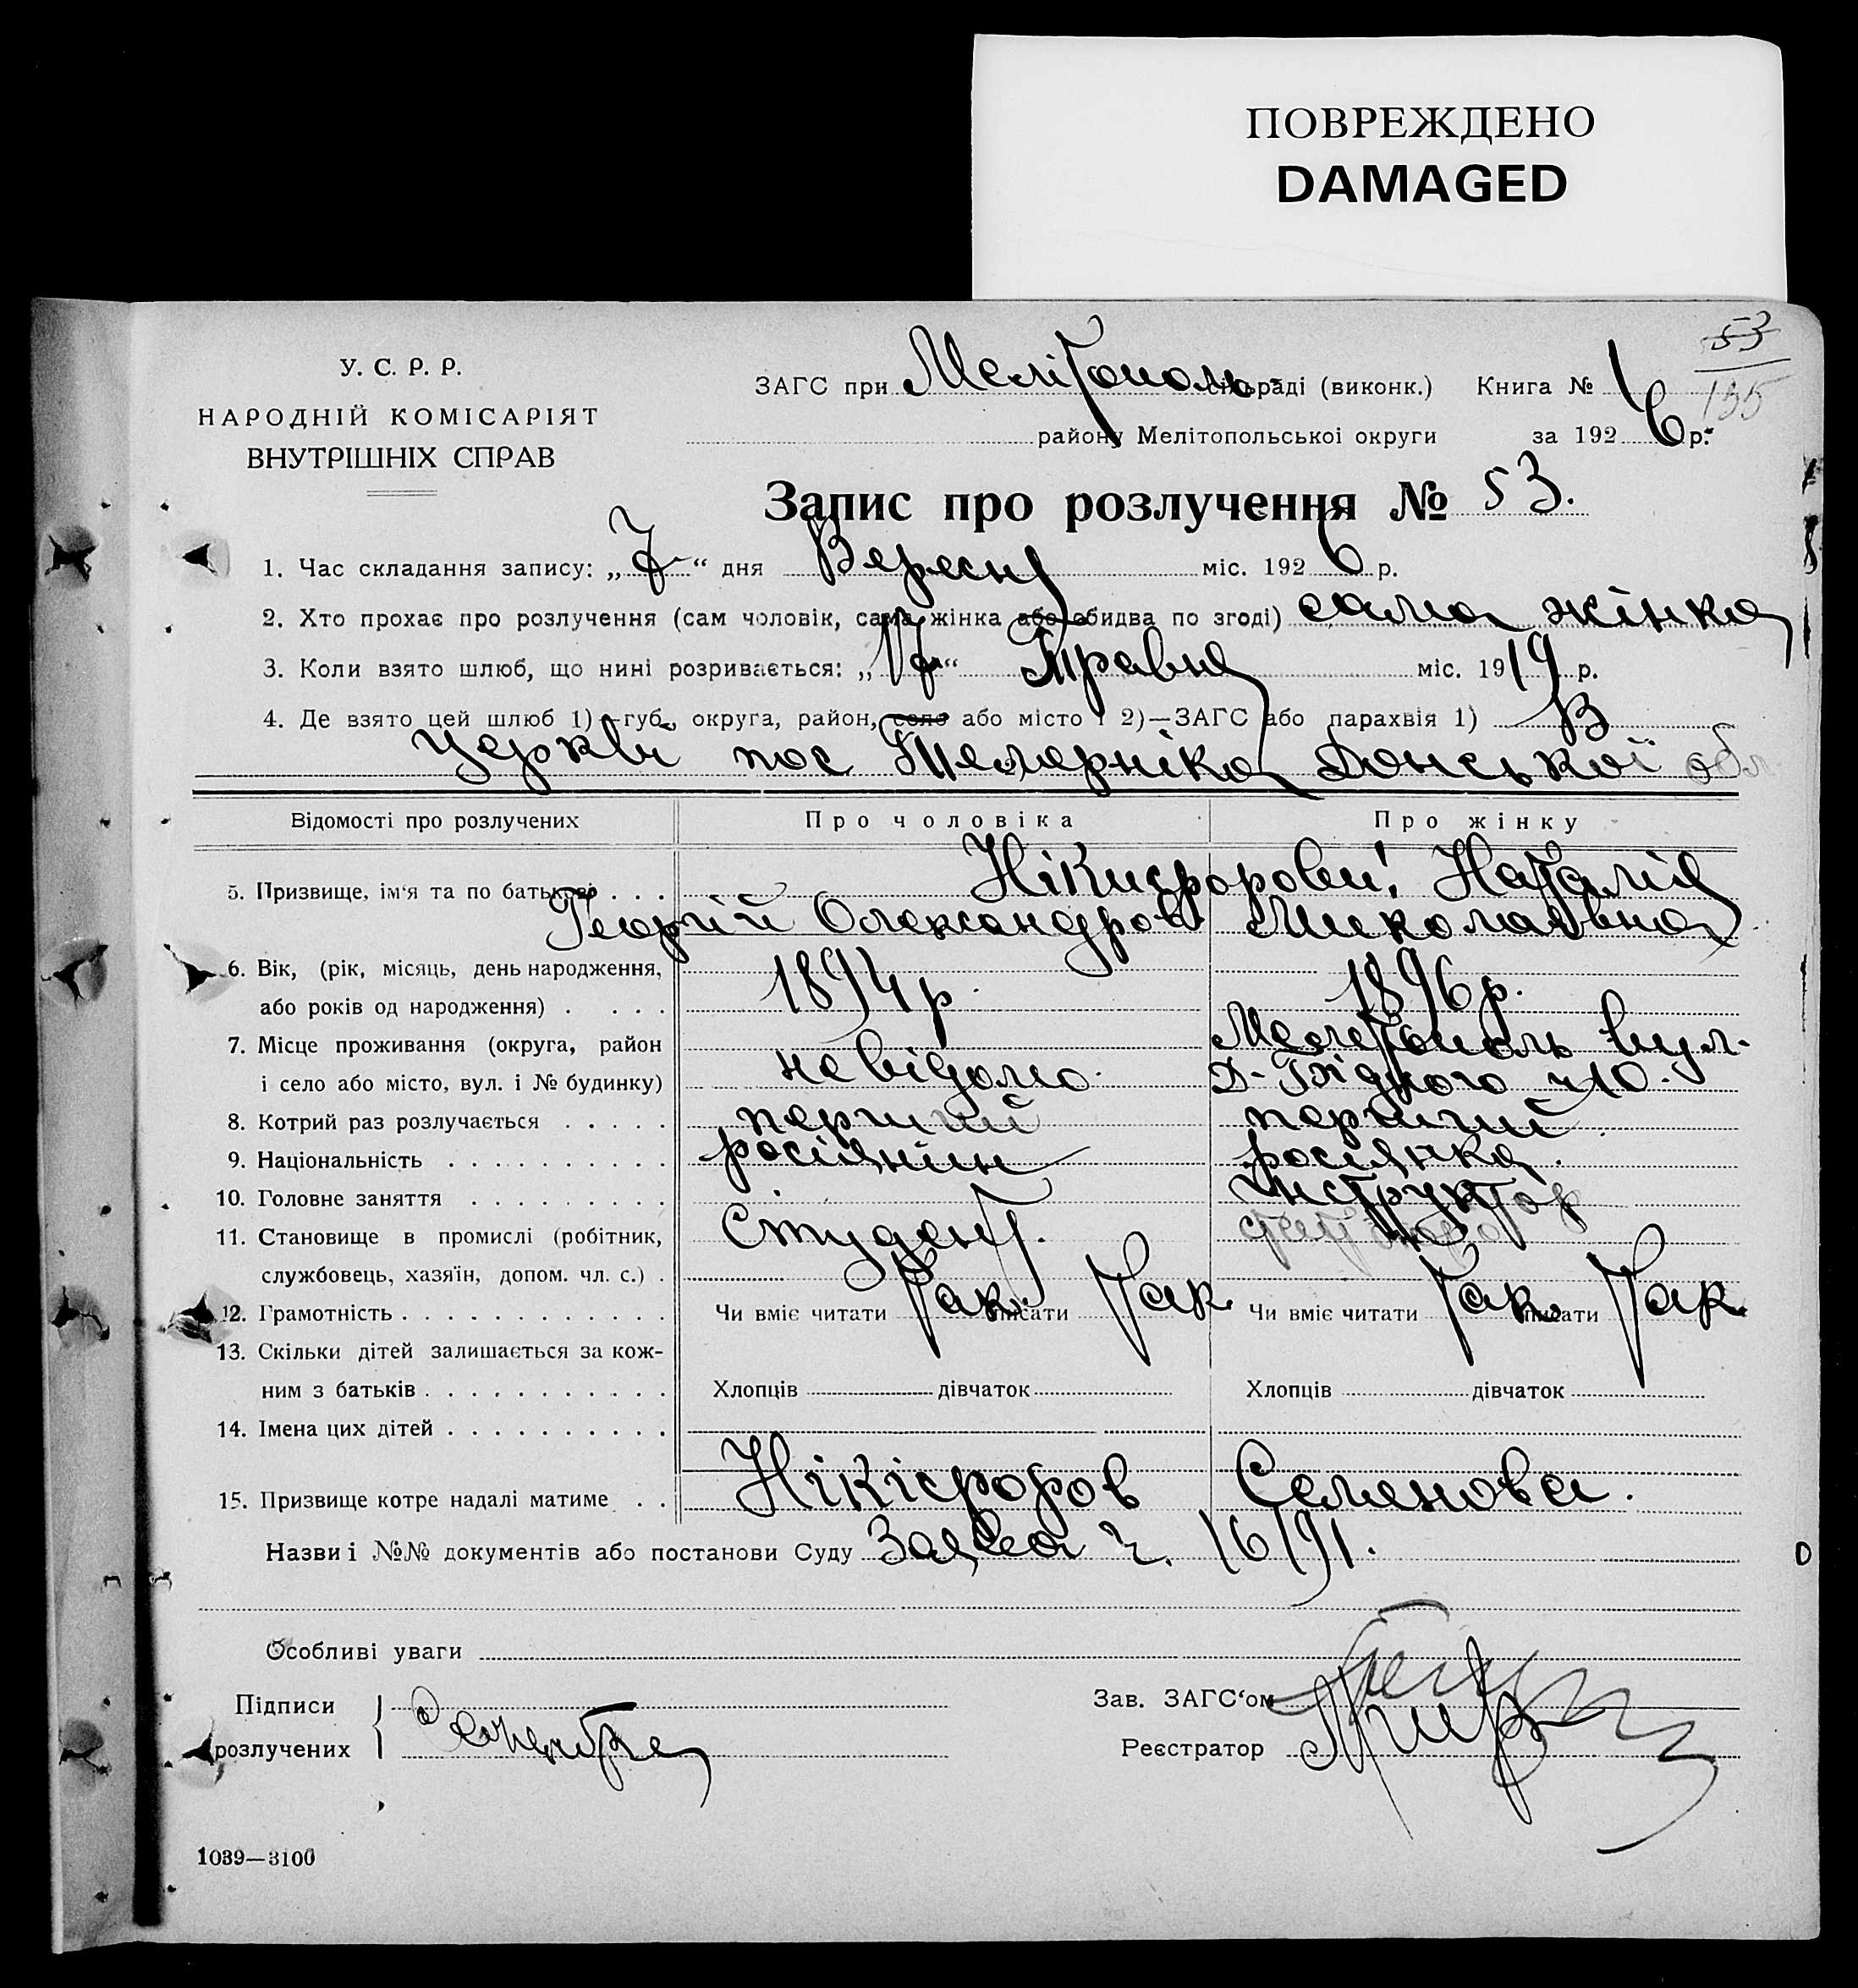 ПОВРЕЖДЕНО
DAMAGED
53
155
У. С. Р. Р.
НАРОДНІЙ КОМІСАРІЯТ
ВНУТРІШНІХ СПРАВ
ЗАГС при Мелітополь- сільраді (виконк.) Книга № 1
району Мелітопольської округи за 1926 р.
Запис про розлучення № 53.
1. Час складання запису: „7“ дня Вересня міс. 1926 р.
2. Хто прохає про розлучення (сам чоловік, сама жінка або обидва по згоді) сама жінка
3. Коли взято шлюб, що нині розривається: „17“ Травня міс. 1919 р.
4. Де взято цей шлюб 1)—губ., округа, район, село або місто і 2)—ЗАГС або парахвія 1) В
церкві пос Темерніка Донської обл
Відомості про розлучених Про чоловіка Про жінку
5. Призвище, ім‘я та по батькові . . . Нікифорови: Наталія
Георгій Олександров Миколаевна
6. Вік, (рік, місяць, день народження, 1894 р. 1896 р.
або років од народження) . . . .
7. Місце проживання (округа, район Мелетополь вул.
і село або місто, вул. і № будинку) невідомо. Д-Бідного ч10.
8. Котрий раз розлучається . . . . . перший перший
9. Національність . . . . . . . . . . росіянин росіянка.
10. Головне заняття . . . . . . . . . инструктор
11. Становище в промислі (робітник, Студент.
службовець, хазяїн, допом. чл. с.) .
12. Грамотність . . . . . . . . . . . . Чи вміє читати так писати так Чи вміє читати так писати так
13. Скільки дітей залишається за кож-
ним з батьків . . . . . . . . . . . Хлопців дівчаток Хлопців дівчаток
14. Імена цих дітей . . . . . . . . . .
15. Призвище котре надалі матиме . . Нікіфоров Семенова.
Назви і №№ документів або постанови Суду Заява ч. 16191.
Особливі уваги
Підписи
розлучених
Зав. ЗАГС‘ом
Реєстратор
1039—3100